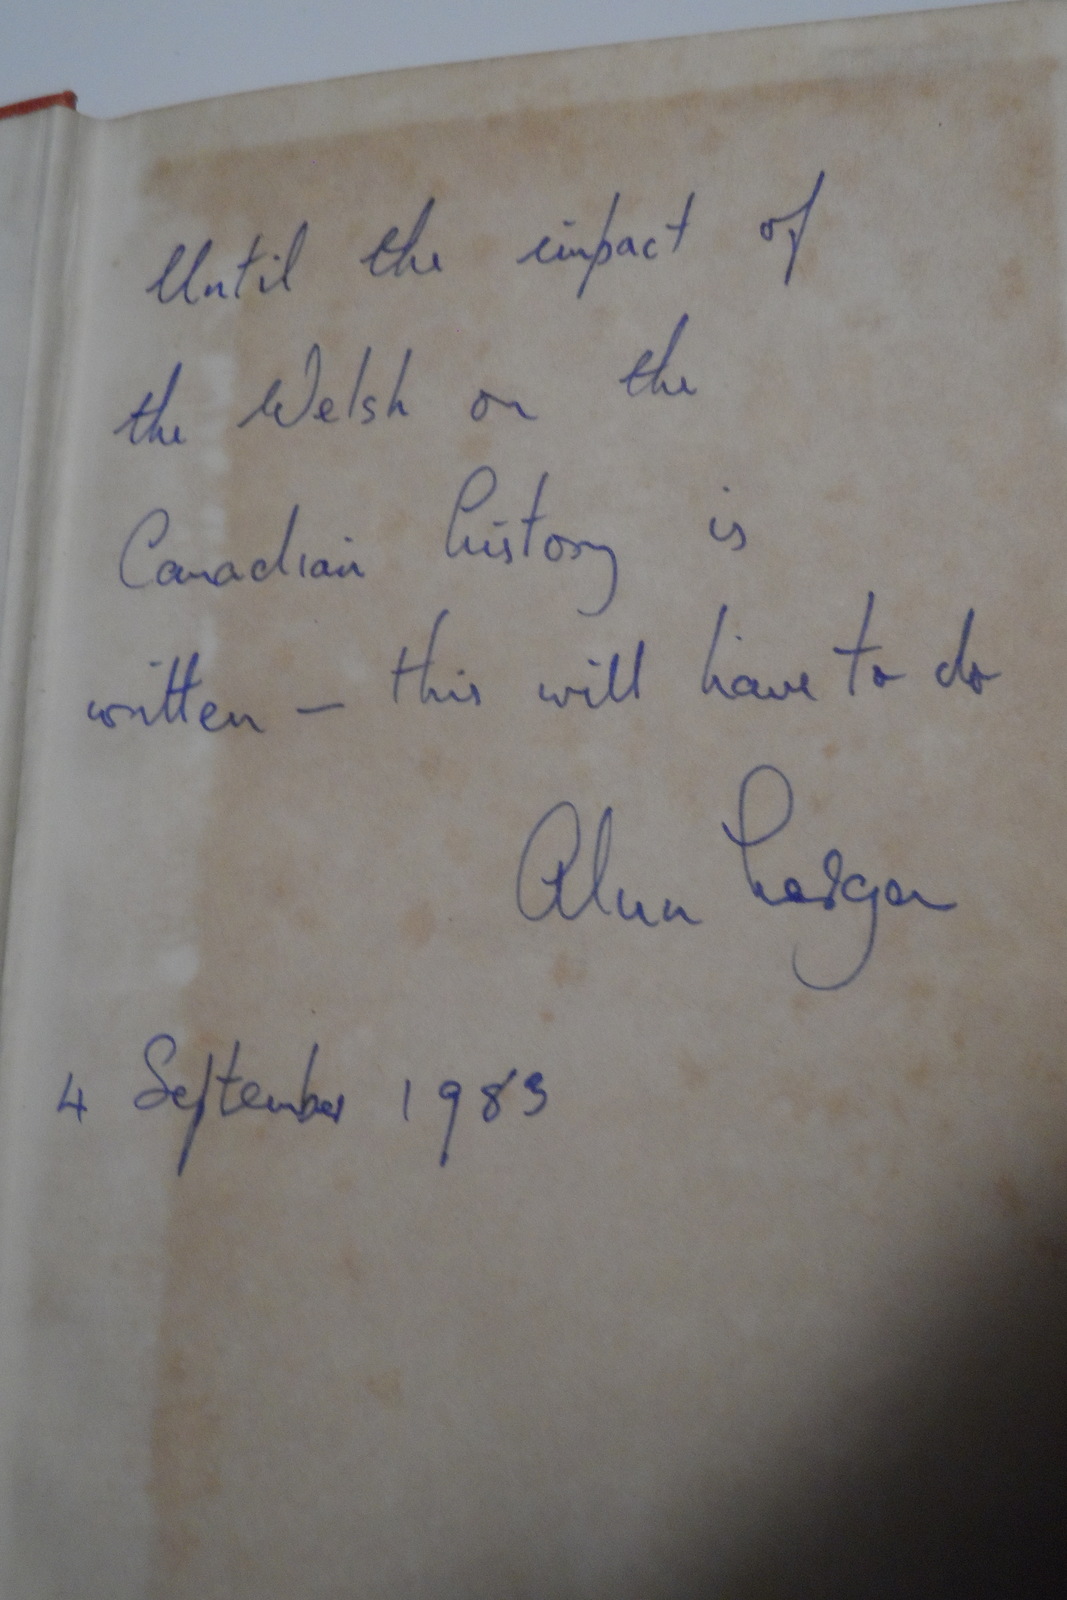 Until the impact of
the Welsh on the
Canadian history is
written – this will have to do
Alun
4 September 1983